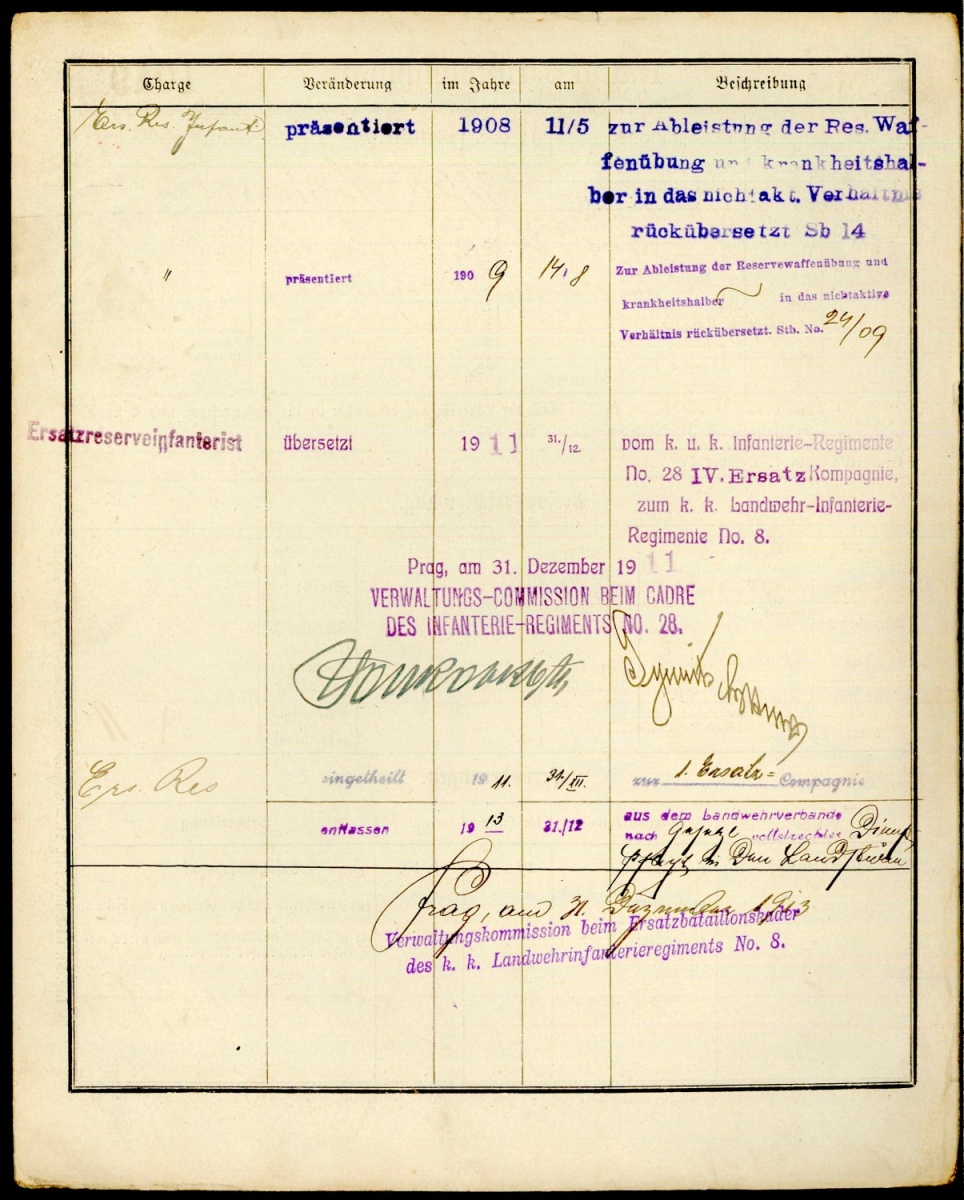 Charge Veränderung im Jahre am Beschreibung
Ers. Res. Infant präsentiert 1908 11/5 zur Ableistung der Res. Waf-
fenübung und krankheitshal-
ber in das nichtakt. Verhältnis
rückübersetzt Sb 14
" präsentiert 1909 14/8 Zur Ableistung der Reservewaffenübung und
krankheitshalber in das nichtaktive
Verhältnis rückübersetzt. Stb. No. 24/09
Ersatzreserveinfanterist übersetzt 1911 31./12. vom k. u. k. Infanterie-Regimente
No. 28 IV. Ersatz Kompagnie,
zum k. k. Landwehr-Infanterie-
Regimente No. 8.
Prag, am 31. Dezember 1911
VERWALTUNGS-COMMISSION BEIM CADRE
DES INFANTERIE-REGIMENTS NO. 28.
Ers. Res eingetheilt 1911. 31/XII. zur 1. Ersatz= Compagnie
entlassen 1913 31./12 aus dem Landwehrverbande
nach Gesetz vollstreckter Dienst
pflicht in den Landsturm
Prag, am 31. Dezember 1913
Verwaltungskommission beim Ersatzbataillonskader
des k. k. Landwehrinfanterieregiments No. 8.